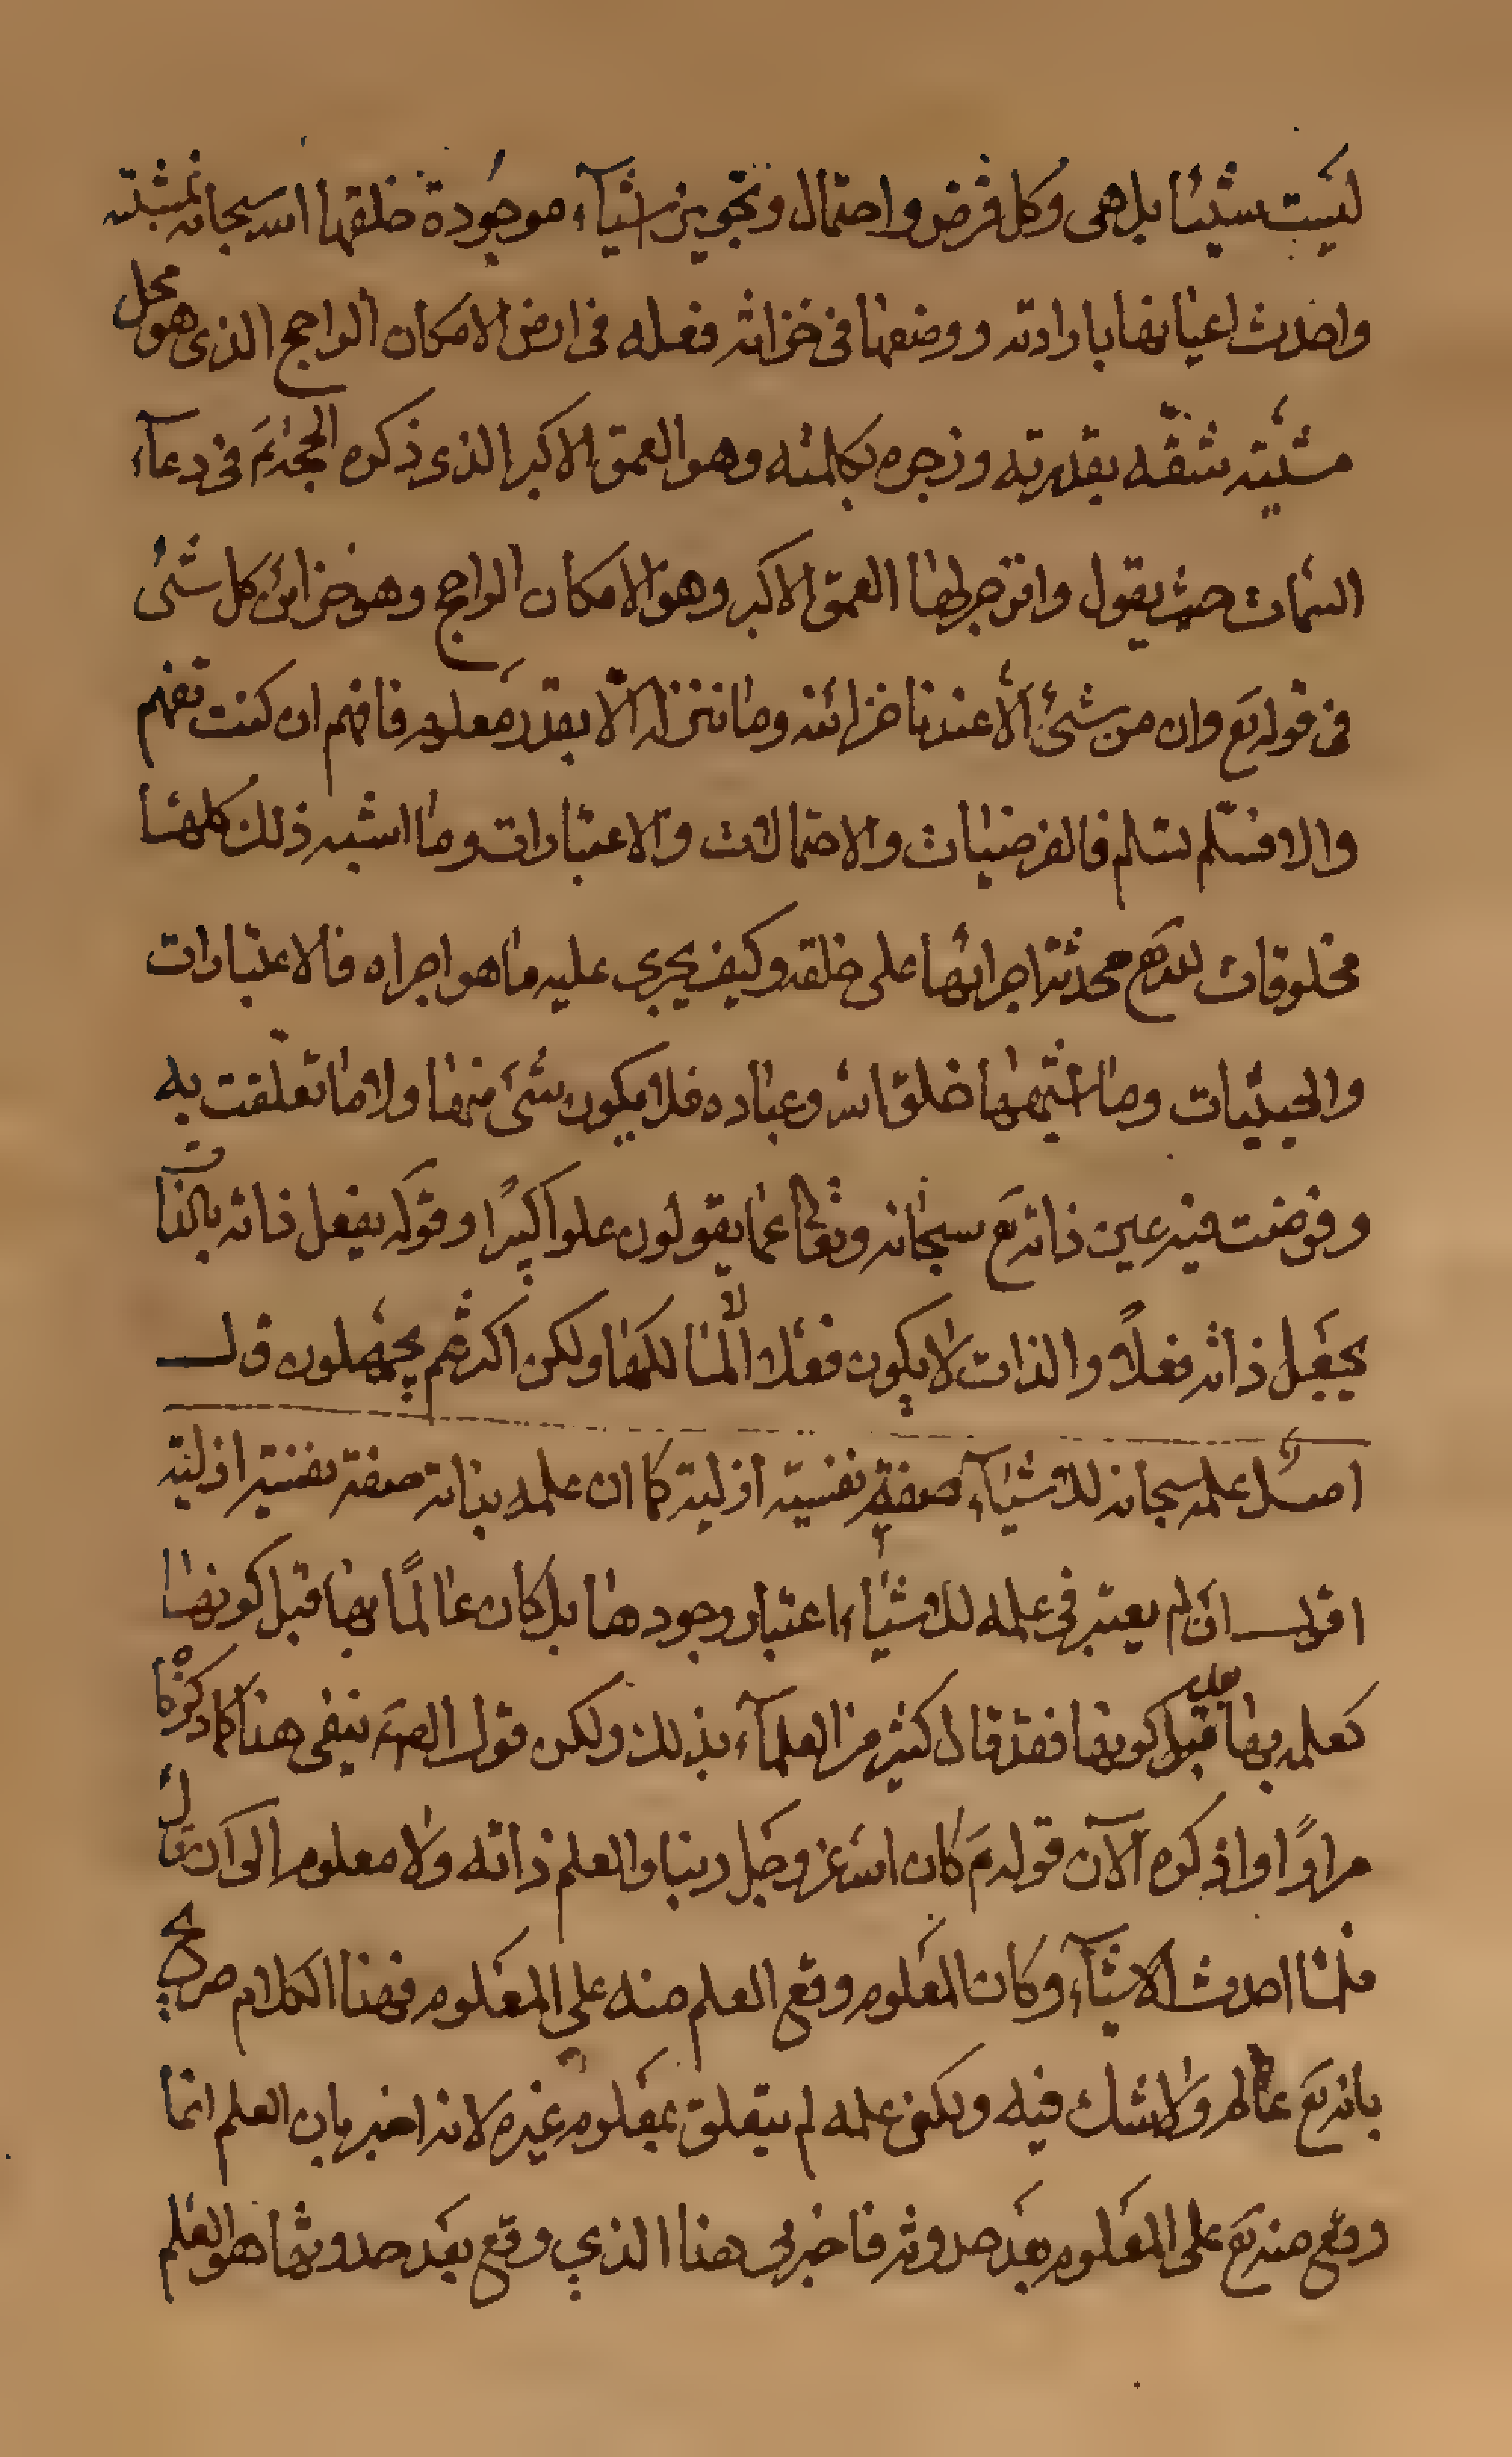 ليست شيئا بل هى وكل فرض واحتمال وتجويز اشيآء موجودة خلقها الله سبحانه بمشيته
واحدث اعيانها بارادته ووضعها فى خزائنه فعله فى ارض الامكان الراجح الذى هو محل
مشيته شقّه بقدرته وزجره بكلمته وهو العمق الاكبر الذى ذكره الحجة ع فى دعآء
السمات حيث يقول وانزجر لها العمق الاكبر وهو الامكان الراجح وهو خزائن كل شئ
فى قوله تع وان من شئ الّا عندنا خزائنه وما ننزله الّا بقدر معلوم فافهم ان كنت تفهم
والا فسلّم تسلم فالفرضيات والاحتمالات والاعتبارات وما اشبه ذلك كلها
مخلوقات لله تع محدثة اجرائها على خلقه وكيف يجرى عليه ما هو اجراه فالاعتبارات
والحيثيات وما اشبهها خلق الله وعباده فلا يكون شئ منها ولا ما تعلّقت به
وفرضت فيه عين ذاته تع سبحانه وتعالى عما يقولون علوا كبيرا وقوله يفعل ذاته بالذات
يجعل ذاته فعلاً والذات لا يكون فعلا الّا لمالكها ولكن اكثرهم يجهلون قولــ
اصل علمه سبحانه للاشيآء صفة نفسية ازلية كما ان علمه بذاته صفة نفسية ازلية
اقولــ ان لم يعتبر فى علمه للاشيآء اعتبار وجودها بل كان عالمًا بها قبل كونها
كعلمه بها بعد كونها فقد قال كثير من العلمآء بذلك ولكن قول الصّ ع ينفى هذا كما ذكرنا
مرارًا واذكره الآن قوله ع كان الله عز وجل ربنا والعلم ذاته ولا معلوم الى ان قال
فلمّا احدث الاشيآء وكان المعلوم وقع العلم منه على المعلوم فهذا الكلام صريح
بانه تع عالم ولا شك فيه ولكن علمه لم يتعلق بمعلوم غيره لانه اخبر بان العلم انما
وقع منه تع على المعلوم بعد حدوثه فاخبرنى هذا الذي وقع بعد حدوثها هو العلم